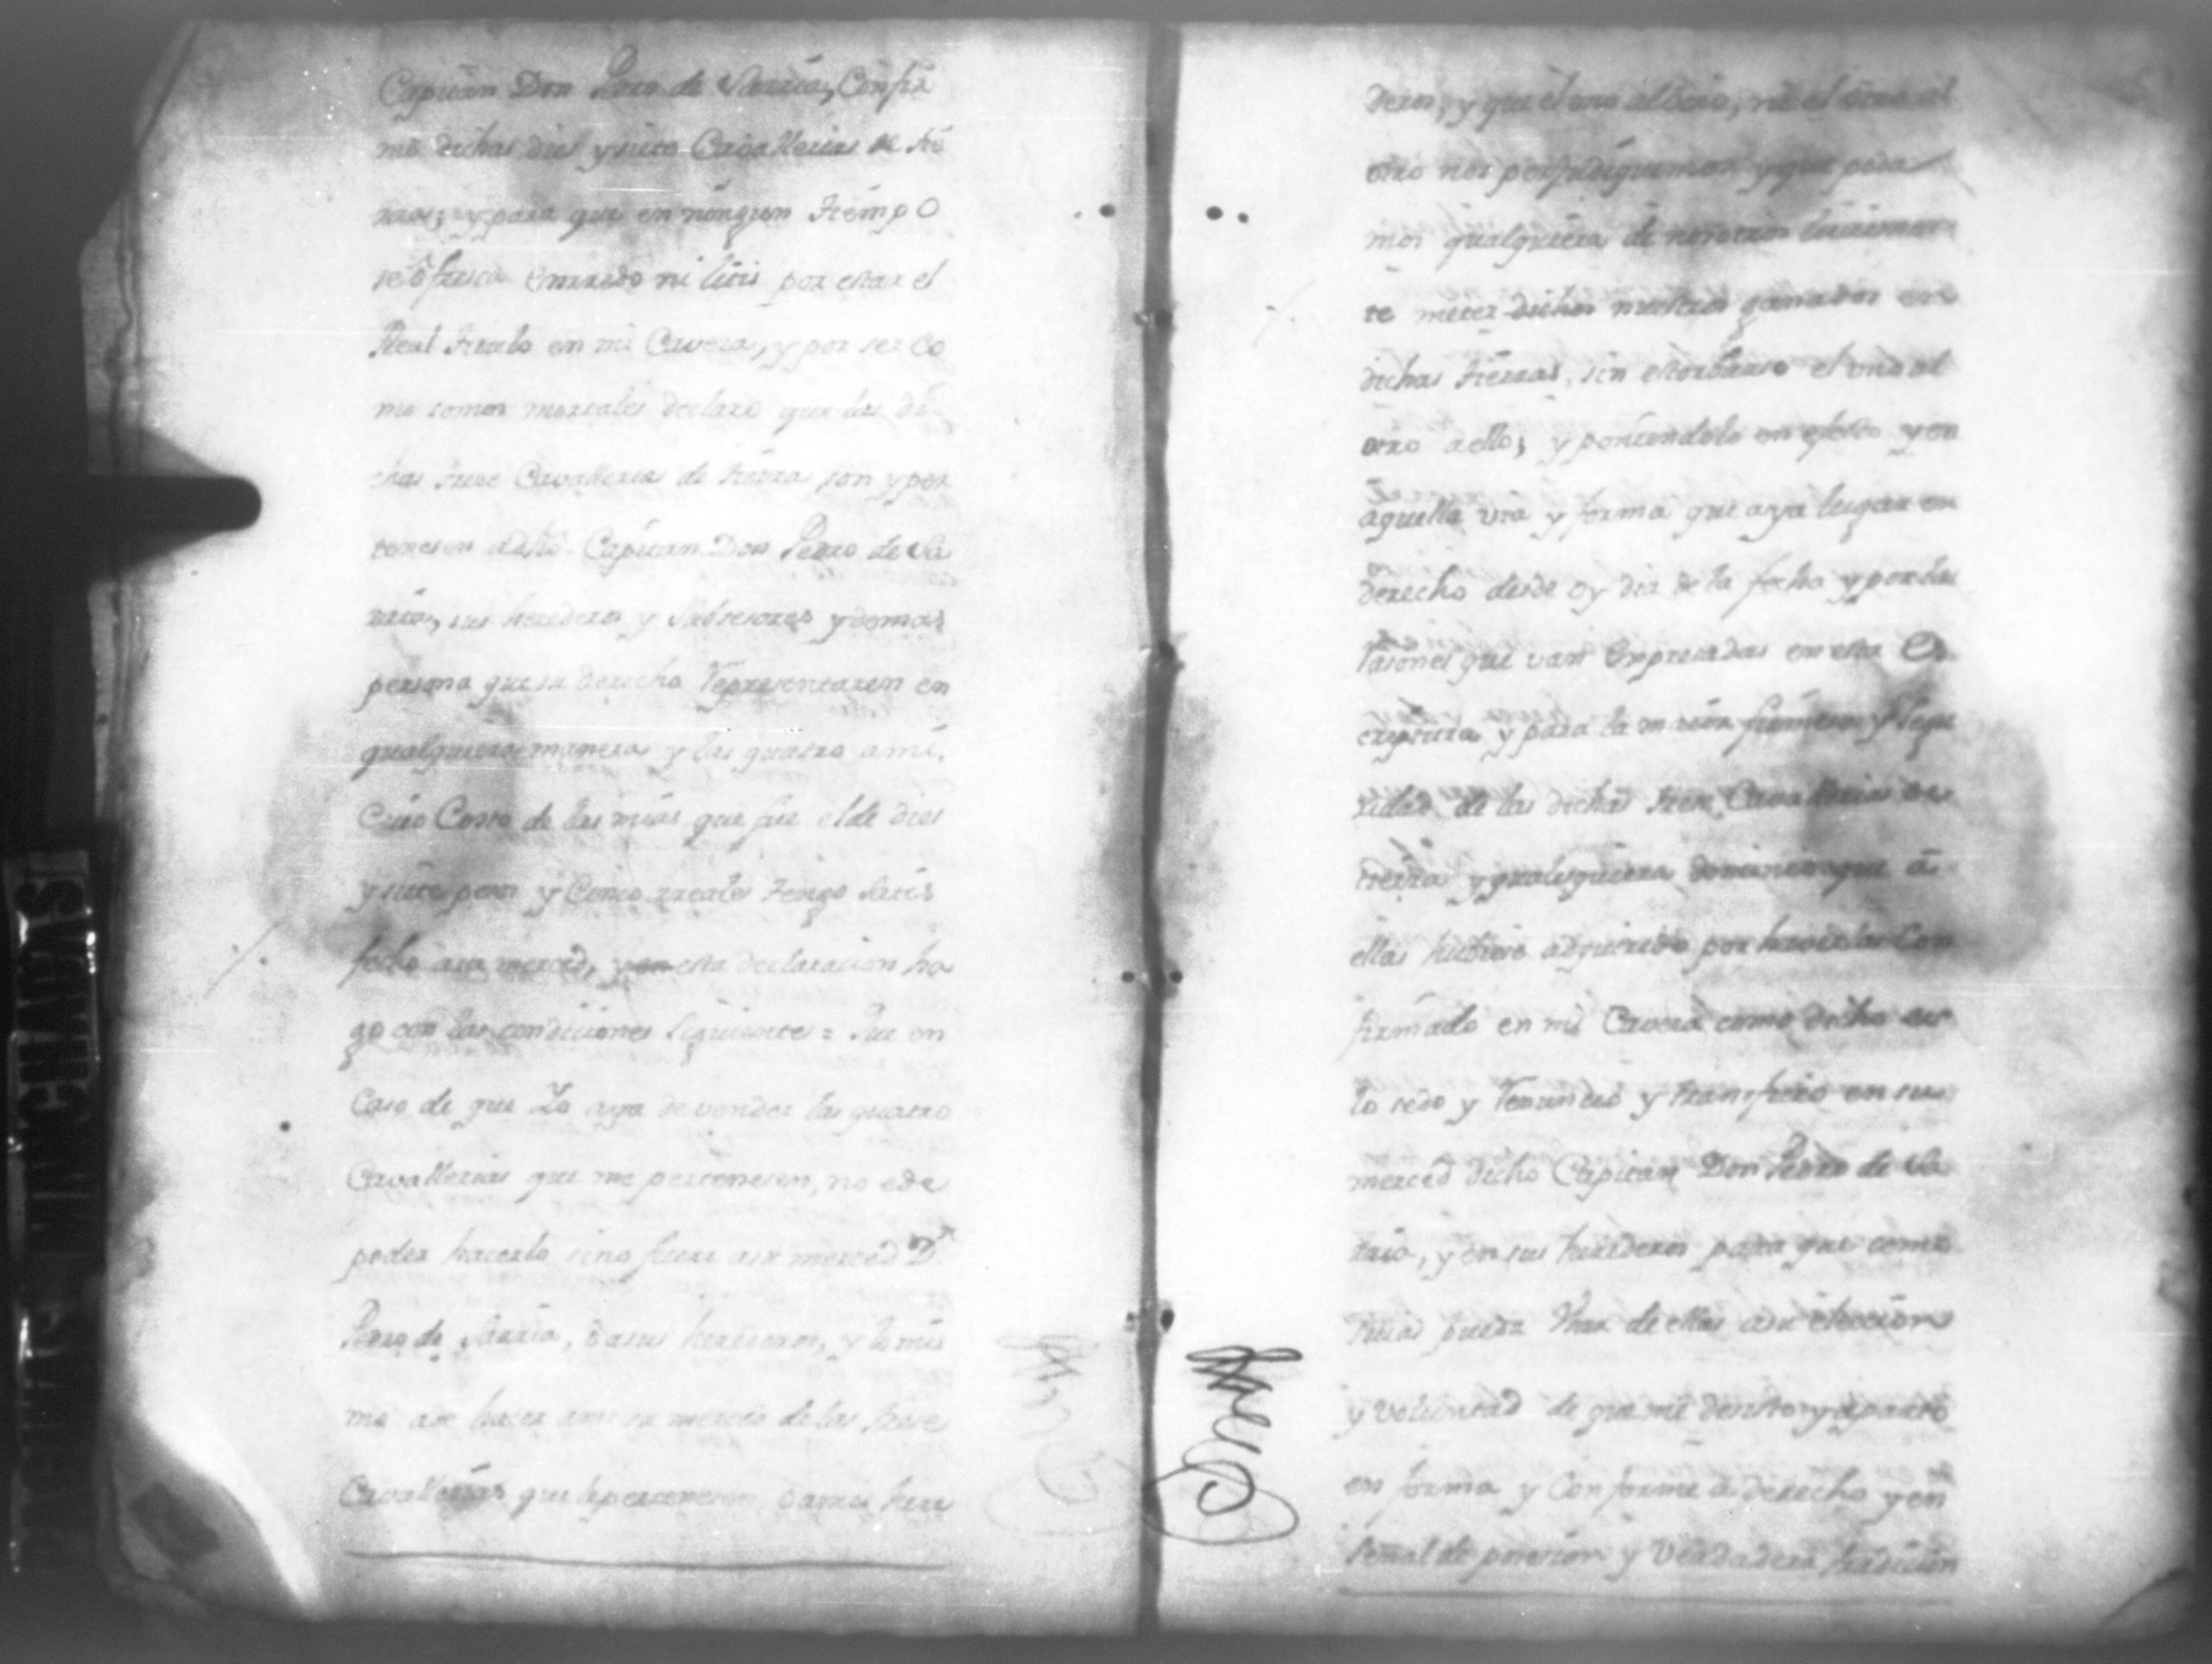 Capitan Don Pedro de Sarria, Confir
mè dichas dies y siete Cavallerias de tie
rras; y para que en ningun tiempo
se ofresca enrredo ni litis por estar el
Real titulo en mi Cavesa, y por ser co
mo somos mortales declaro que las di
chas trese Cavallerias de tierra son y per
tenesen a dho. Capitan Don Pedro de Sa
rria, sus herederos y subsesores y demas
persona que su derecho representaren en
qualquiera manera y las quatro a mi,
Cuio Costo de las mias que fue el de dies
y siete pesos y Cinco rreales tengo satis
fecho a su merced, y esta declaracion ha
go con las condiciones siguientes = Que en
Caso de que Yo aya de vender las quatro
Cavallerias que me pertenesen, no e de
poder hacerlo sino fuere a su merced Dn.
Pedro de Sarria, ò a sus herederos, y lo mis
mo a de hacer a mi su merced de las trese
Cavallerias que le pertenesen, ò a mis here
deros, y que el uno al otro, ni el otro al
otro nos perjudiquemos y que poda
mos qualquiera de nosotros
te meter dichos nuestros ganados en
dichas tierras, sin estorbarse el uno al
otro a ello; y poniendolo en efecto y en
aquella via y forma que aya lugar en
derecho desde oy dia de la fecha y por las
rasones que van expresadas en esta Es
criptura y para la maior firmesa y segu
ridad de las dichas trese Cavallerias de
tierra y qualesquiera dominio que à
ellas hubiere adquirido por haverlas Con
firmado en mi Cavesa como dicho es
lo sedo y renuncio y transfiero en su
merced dicho Capitan Don Pedro de Sa
rria, y en sus herederos para que como
suias pueda usar de ellas a su eleccion
y voluntad de que me desisto y aparto
en forma y Conforme à derecho y en
señal de posecion y verdadera tradicion